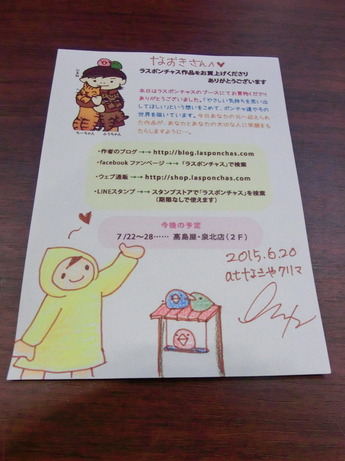 なおきさんへ
ラスポンチャス作品をお買上げくださり
ありがとうございます
本日はラスポンチャスのブースにてお買物くださり
ありがとうございました。「やさしい気持ちを思い出
してほしい」という想いをこめて、ポンチャ達やその
世界を描いています。今日あなたの元へ迎えられ
た作品が、あなたとあなたの大切な人に笑顔をも
たらしますように…。
・作者のブログ →→ http://blog.lasponchas.com
・facebook ファンページ →→「ラスポンチャス」で検索
・ウェブ通販 →→ http://shop.lasponchas.com
・LINEスタンプ →→ スタンプストアで「ラスポンチャス」を検索
(期限なしで使えます)
今後の予定
7/22〜28…… 高島屋・泉北店(2F)
2015.6.20